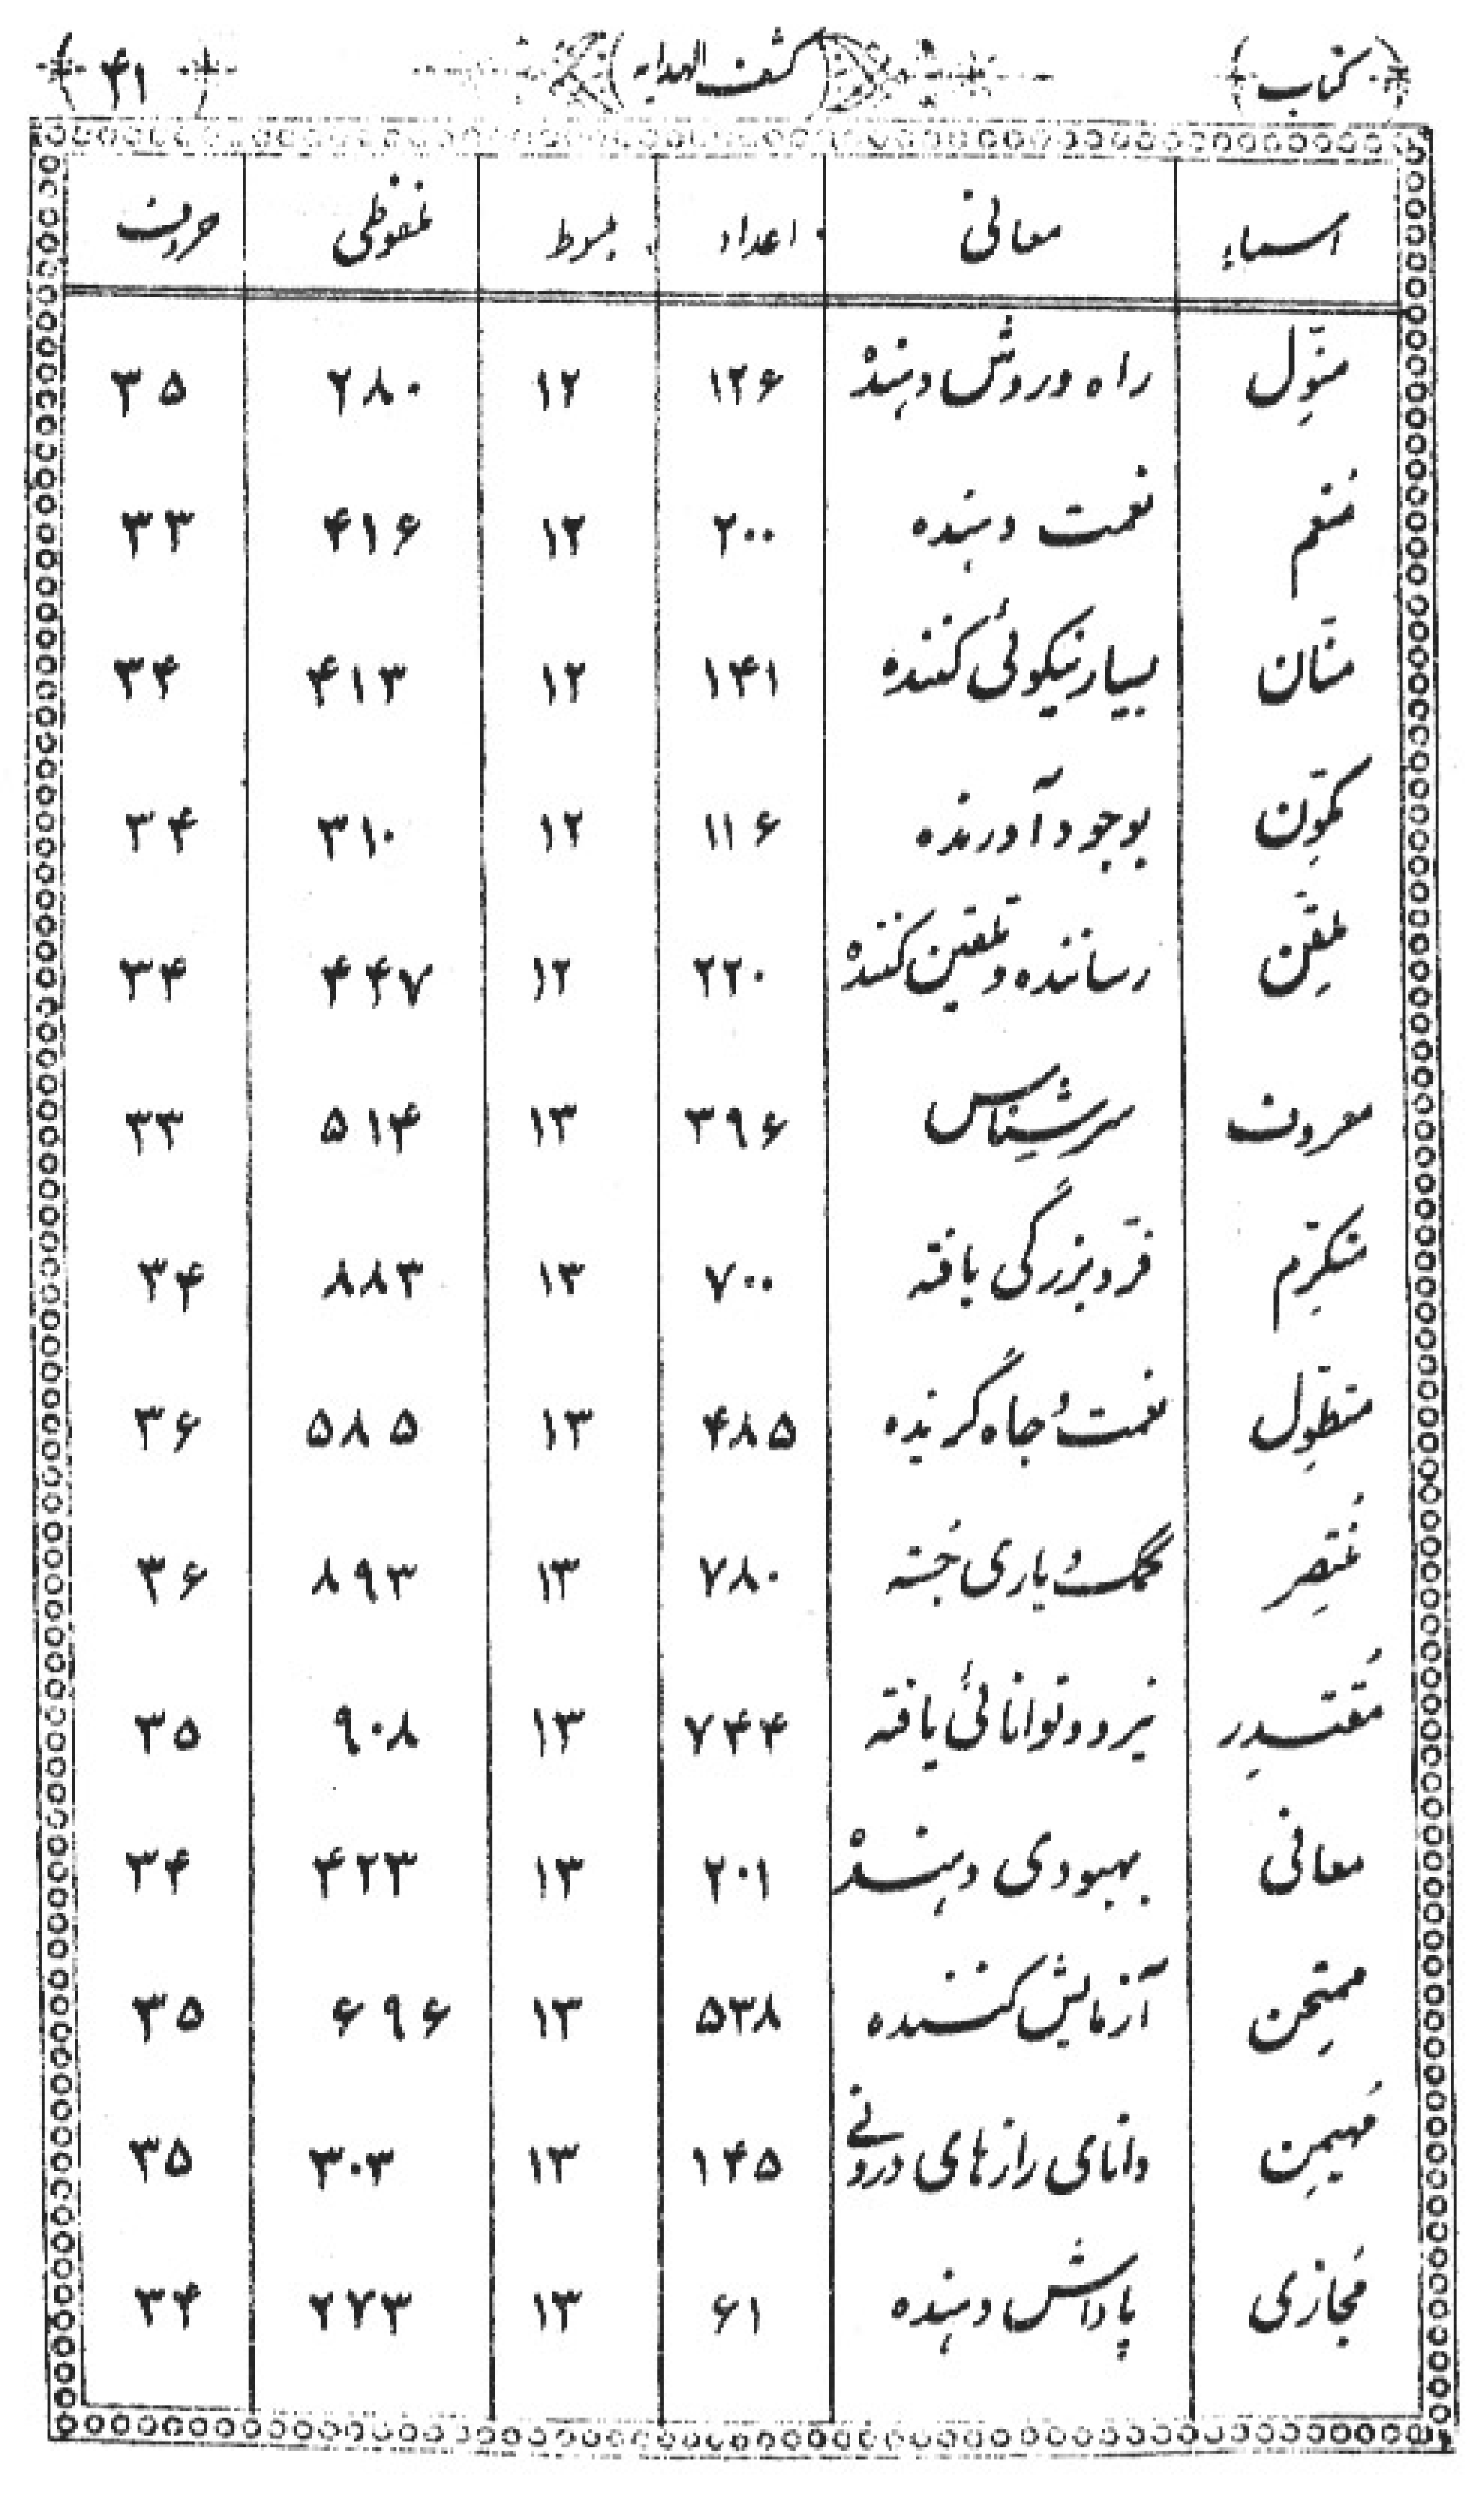 کتاب کشف الهدایه ۴۱
اسماء معانی اعداد مبسوط ملفوظی حروف
منوّل راه و روش دهنده ۱۲۶ ۱۲ ۲۸۰ ۳۵
مُنعم نعمت دهنده ۲۰۰ ۱۲ ۴۱۶ ۳۳
منّان بسیار نیکوئی کننده ۱۴۱ ۱۲ ۴۱۳ ۳۴
مکوّن بوجود آورنده ۱۱۶ ۱۲ ۳۱۰ ۳۴
ملقّن رساننده و تلقین کننده ۲۲۰ ۱۲ ۴۴۷ ۳۴
معروف سرشناس ۳۹۶ ۱۳ ۵۱۴ ۳۳
متکرّم فرّ و بزرگی یافته ۷۰۰ ۱۳ ۸۸۳ ۳۴
متطوّل نعمت و جاه گزیده ۴۸۵ ۱۳ ۵۸۵ ۳۶
مُنتصِر کمک و یاری جُسته ۷۸۰ ۱۳ ۸۹۳ ۳۶
مُقتدِر نیرو و توانائی یافته ۷۴۴ ۱۳ ۹۰۸ ۳۵
معافی بهبودی دهنده ۲۰۱ ۱۳ ۴۲۳ ۳۴
ممتحِن آزمایش کننده ۵۳۸ ۱۳ ۶۹۶ ۳۵
مُهیمِن دانای رازهای درونی ۱۴۵ ۱۳ ۳۰۳ ۳۵
مُجازی پاداش دهنده ۶۱ ۱۳ ۲۷۳ ۳۴